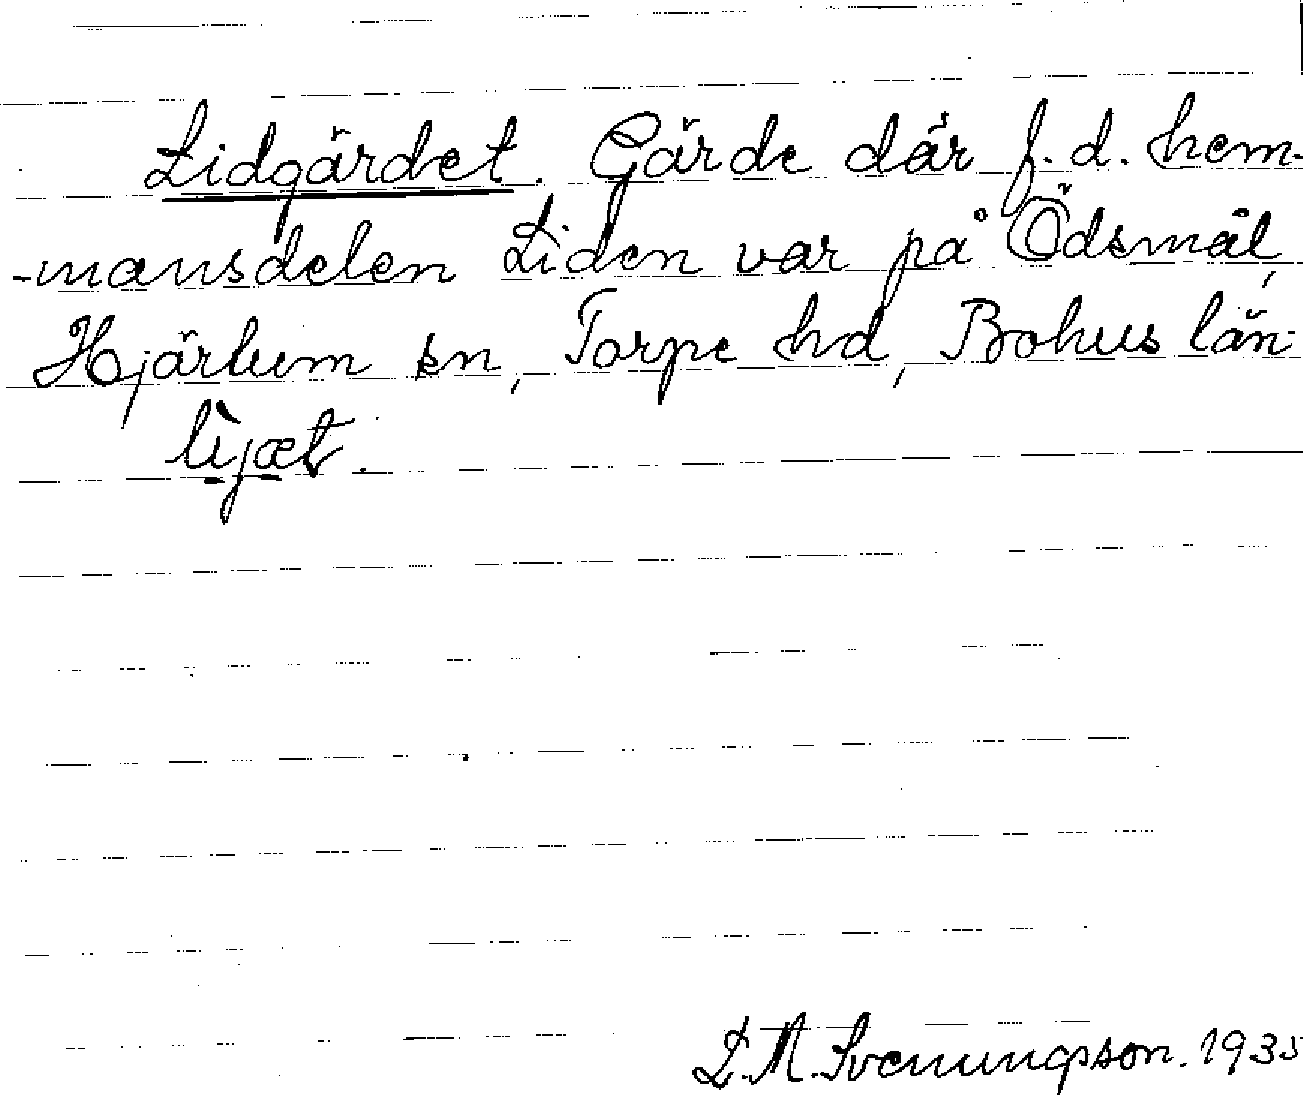 Lidgärdet. Gärde där f. d. hem-
-mansdelen Liden var på Ödsmål,
Hjärtum sn, Torpe hd, Bohus län.
L. M. Svenungsson. 1935